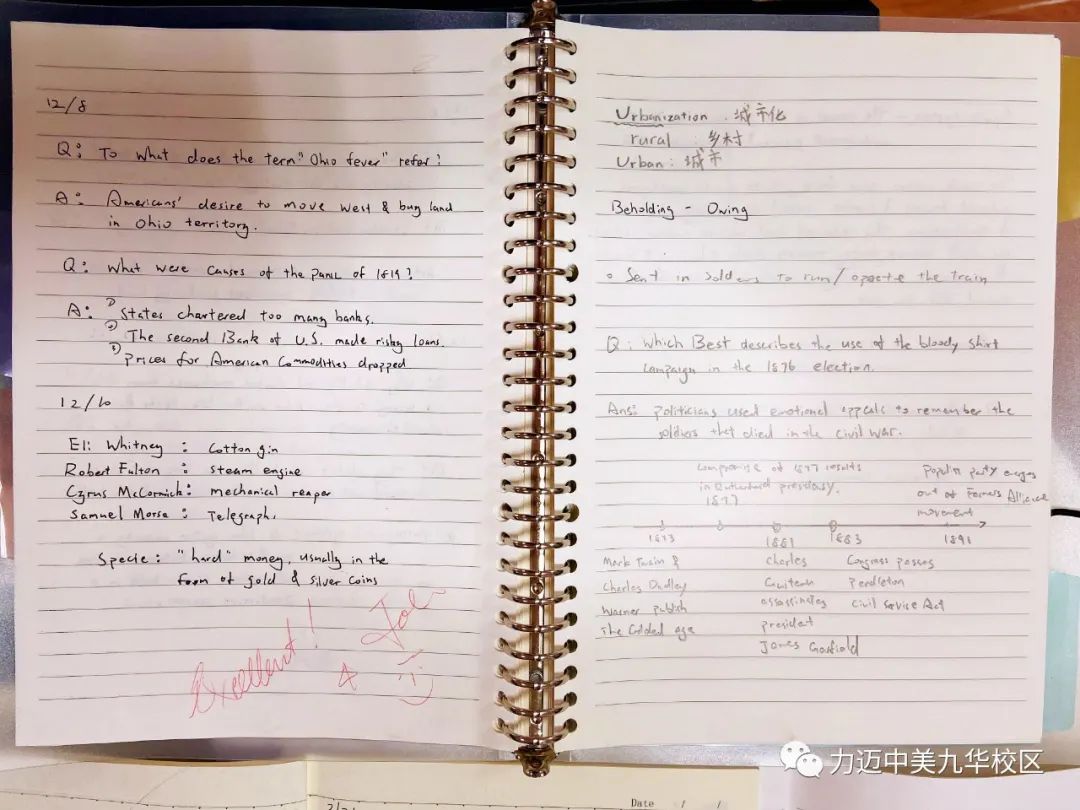 12/8
Q: To what does the term "Ohio fever" refer?
A: Americans' desire to move west & buy land
in Ohio territory.
Q: What were causes of the panic of 1819?
A: ① States chartered too many banks.
② The second Bank of U.S. made risky loans.
③ Prices for American Commodities dropped
12/10
Eli Whitney : Cotton gin
Robert Fulton : steam engine
Cyrus McCormick: mechanical reaper
Samuel Morse : Telegraph.
Specie : "hard" money, usually in the
form of gold & silver coins
Excellent!
Urbanization : 城市化
rural : 乡村
Urban : 城市
Beholding - Owing
Sent in soldiers to run/operate the train
Q: Which Best describes the use of the bloody shirt
campaign in the 1876 election.
Ans: politicians used emotional appeals to remember the
soldiers that died in the civil war.
Compromise of 1877 results
in previously.
1877
Populist party emerges
out of Farmers Alliance
movement
1873 1881 1883 1891
Mark Twain &
Charles Dudley
Warner publish
The Gilded age
Charles
Guiteau
assassinates
president
James Garfield
Congress passes
Pendleton
Civil Service Act
Date / /
力迈中美九华校区